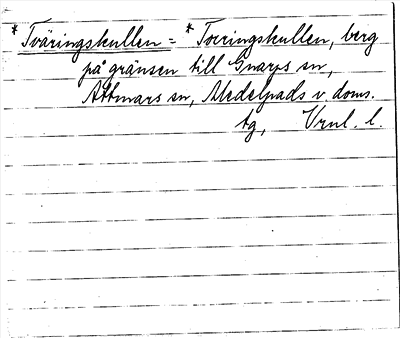 *Tväringskullen = *Torringskullen, berg
på gränsen till Gnarps sn,
Attmars sn, Medelpads v. doms.
tg, Vrnl. l.